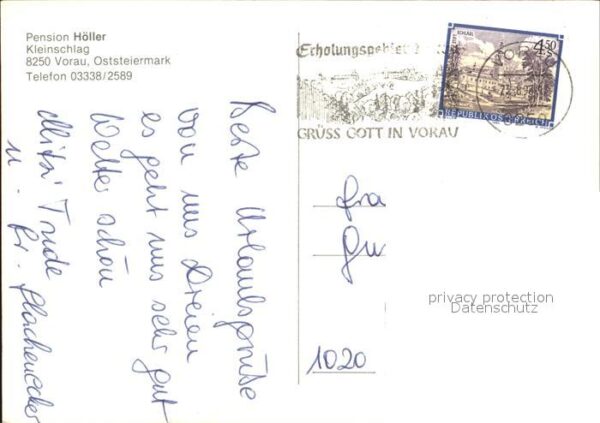 Pension Höller
Kleinschlag
8250 Vorau, Oststeiermark
Telefon 03338/2589
Erholungsgebiet
GRÜSS GOTT IN VORAU
4.50
REPUBLIK ÖSTERREICH
VORAU
Beste Urlaubsgrüße
von uns Dreien
es geht uns sehr gut
Wetter schön
Mitzi Trude
u. Fr. Flachenecker
Fra
Gu
1020
privacy protection
Datenschutz